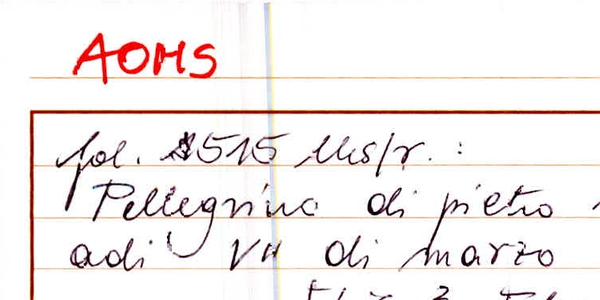 AOMS
fol. 1515 Ms/r. :
Pellegrino di pietro
adi VII di marzo